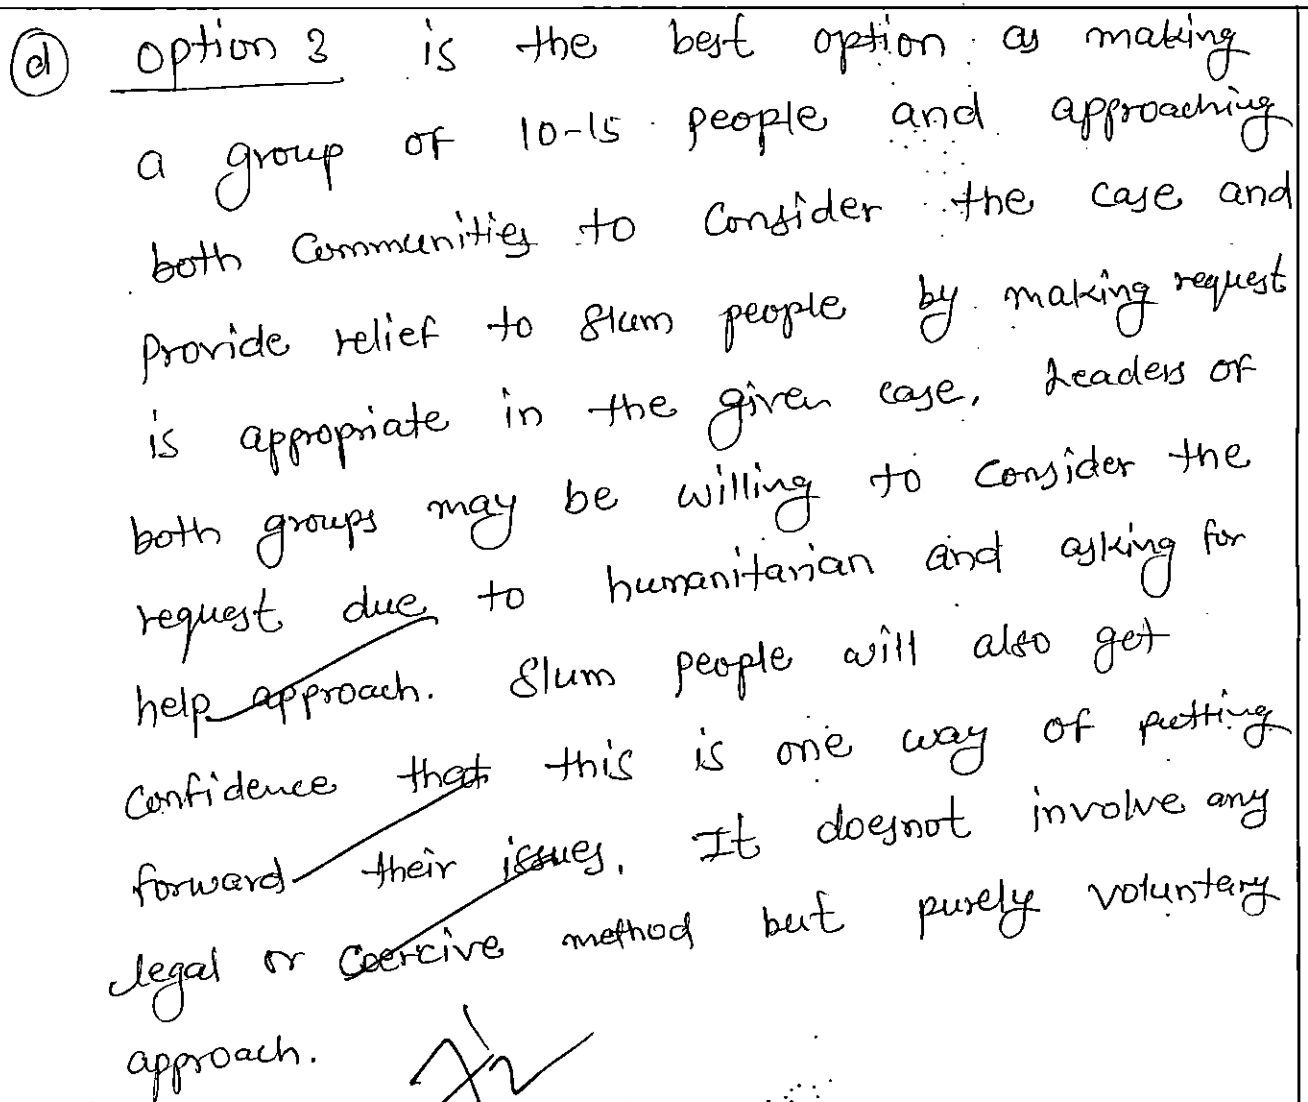 (d) option 3 is the best option as making
a group of 10-15 people and approaching
both Communities to Consider the case and
Provide relief to slum people by making request
is appropriate in the given case. Leaders of
both groups may be willing to consider the
request due to humanitarian and asking for
help approach. Slum people will also get
Confidence that this is one way of putting
forward their issues. It doesnot involve any
legal or Coercive method but purely voluntary
approach.